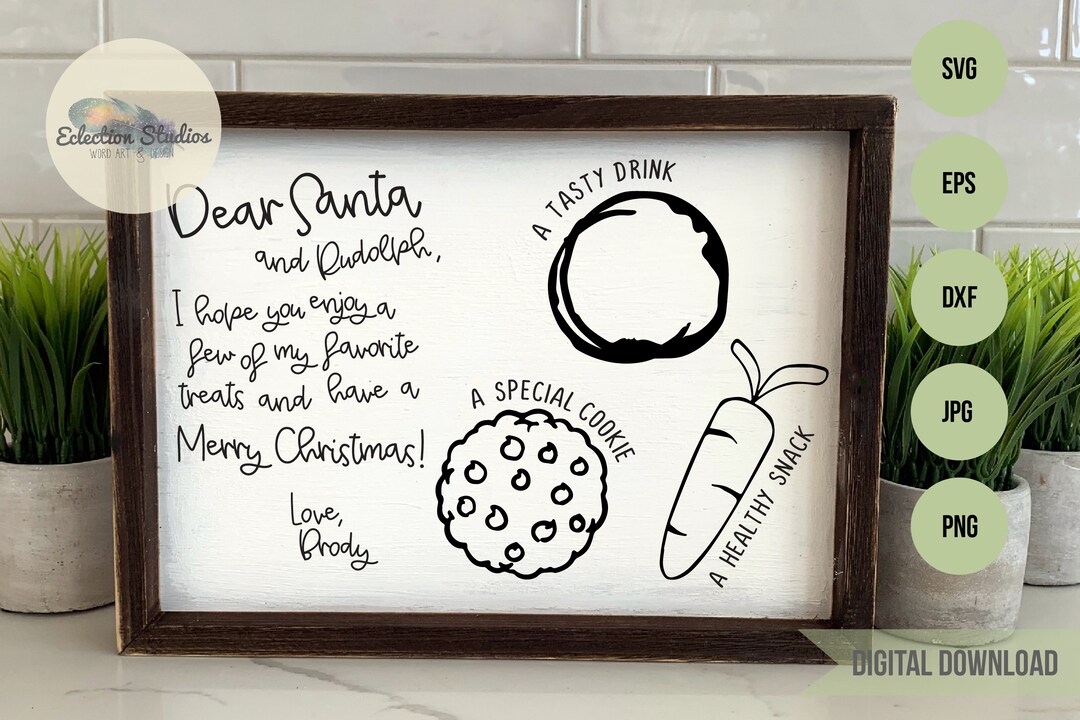 Eclection Studios
WORD ART & DESIGN
Dear Santa
and Rudolph,
I hope you enjoy a
few of my favorite
treats and have a
Merry Christmas!
Love,
Brody
A TASTY DRINK
A SPECIAL COOKIE
A HEALTHY SNACK
SVG
EPS
DXF
JPG
PNG
DIGITAL DOWNLOAD